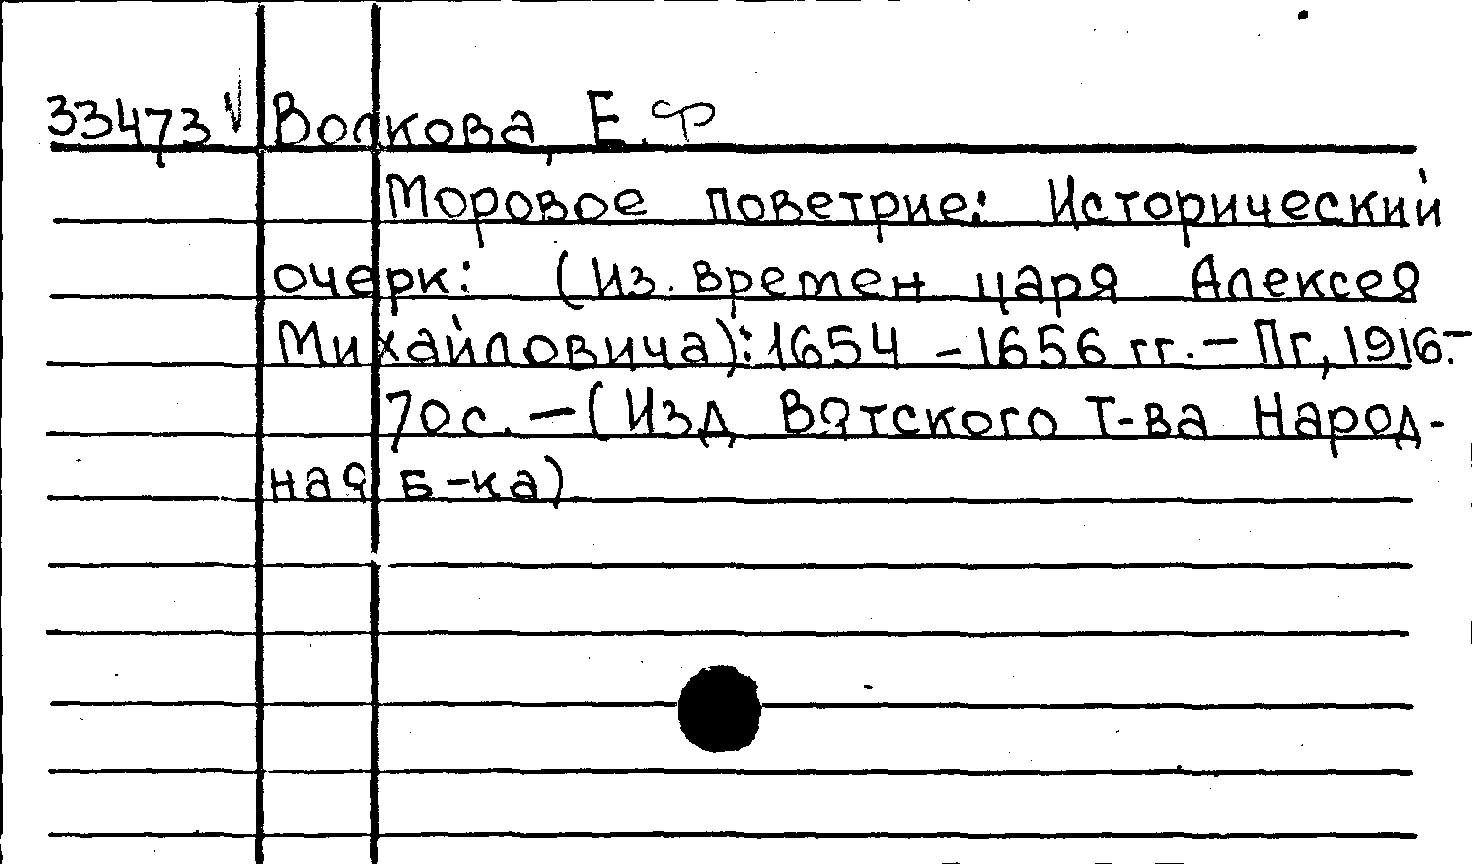 33473 V Волкова, Е. Ф
Моровое поветрие: Исторический
очерк: (Из. времен царя Алексея
Михайловича): 1654 - 1656 гг. - Пг, 1916. -
70с. - (Изд Вятского Т-ва Народ-
ная Б-ка)